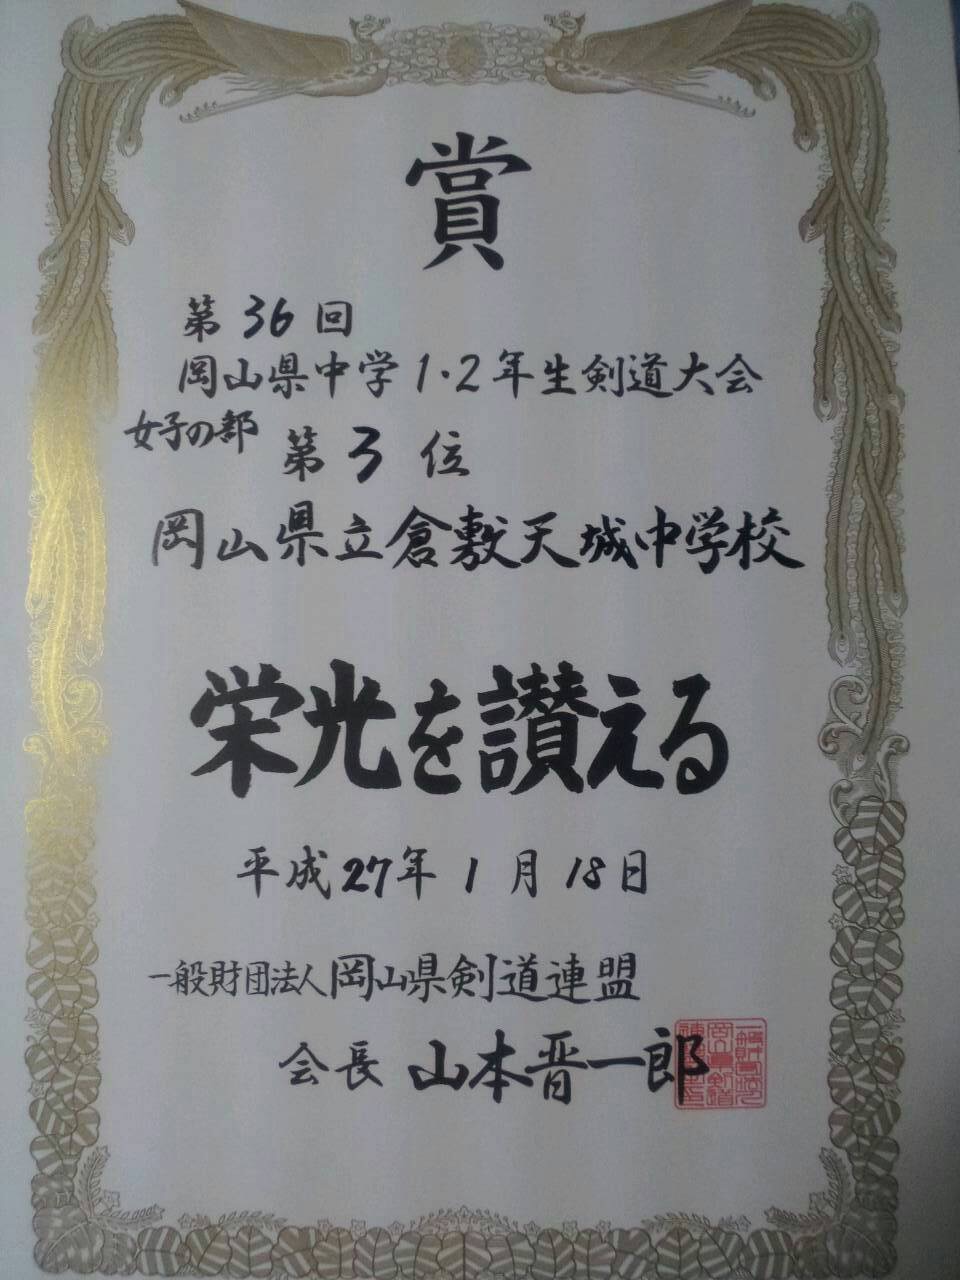 賞
第36回
岡山県中学1・2年生剣道大会
女子の部 第3位
岡山県立倉敷天城中学校
栄光を讃える
平成27年1月18日
一般財団法人岡山県剣道連盟
会長 山本晋一郎